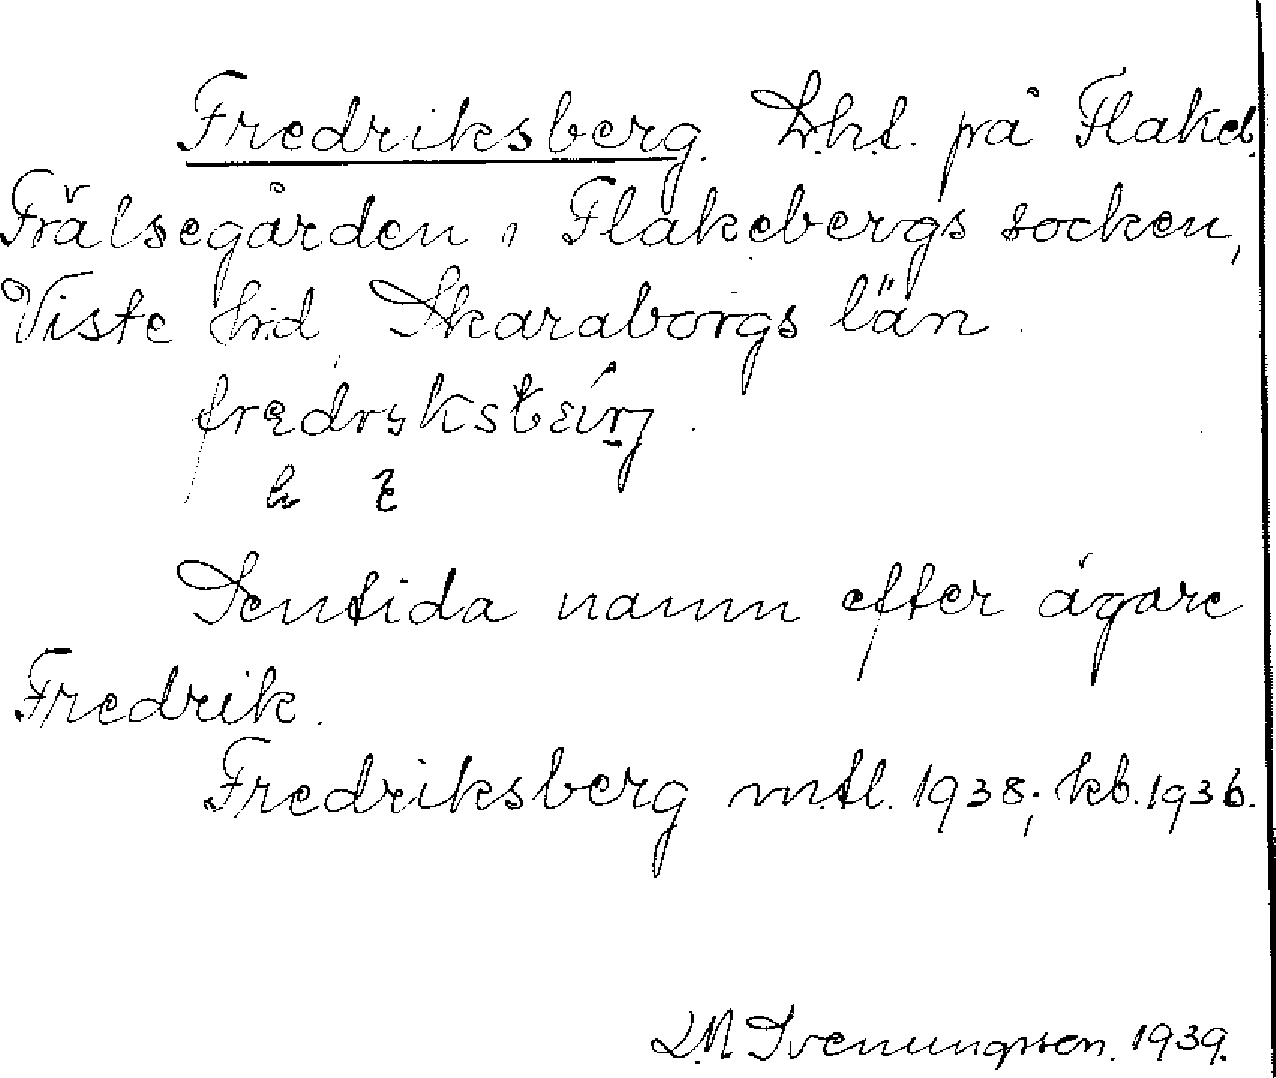 Fredriksberg. Lht. på Flakeb.
Frälsegården i Flakebergs socken,
Viste hrd, Skaraborgs län.
Sentida namn efter ägare
Fredrik.
Fredriksberg mtl. 1938; kb. 1936.
L M Svenungsson. 1939.